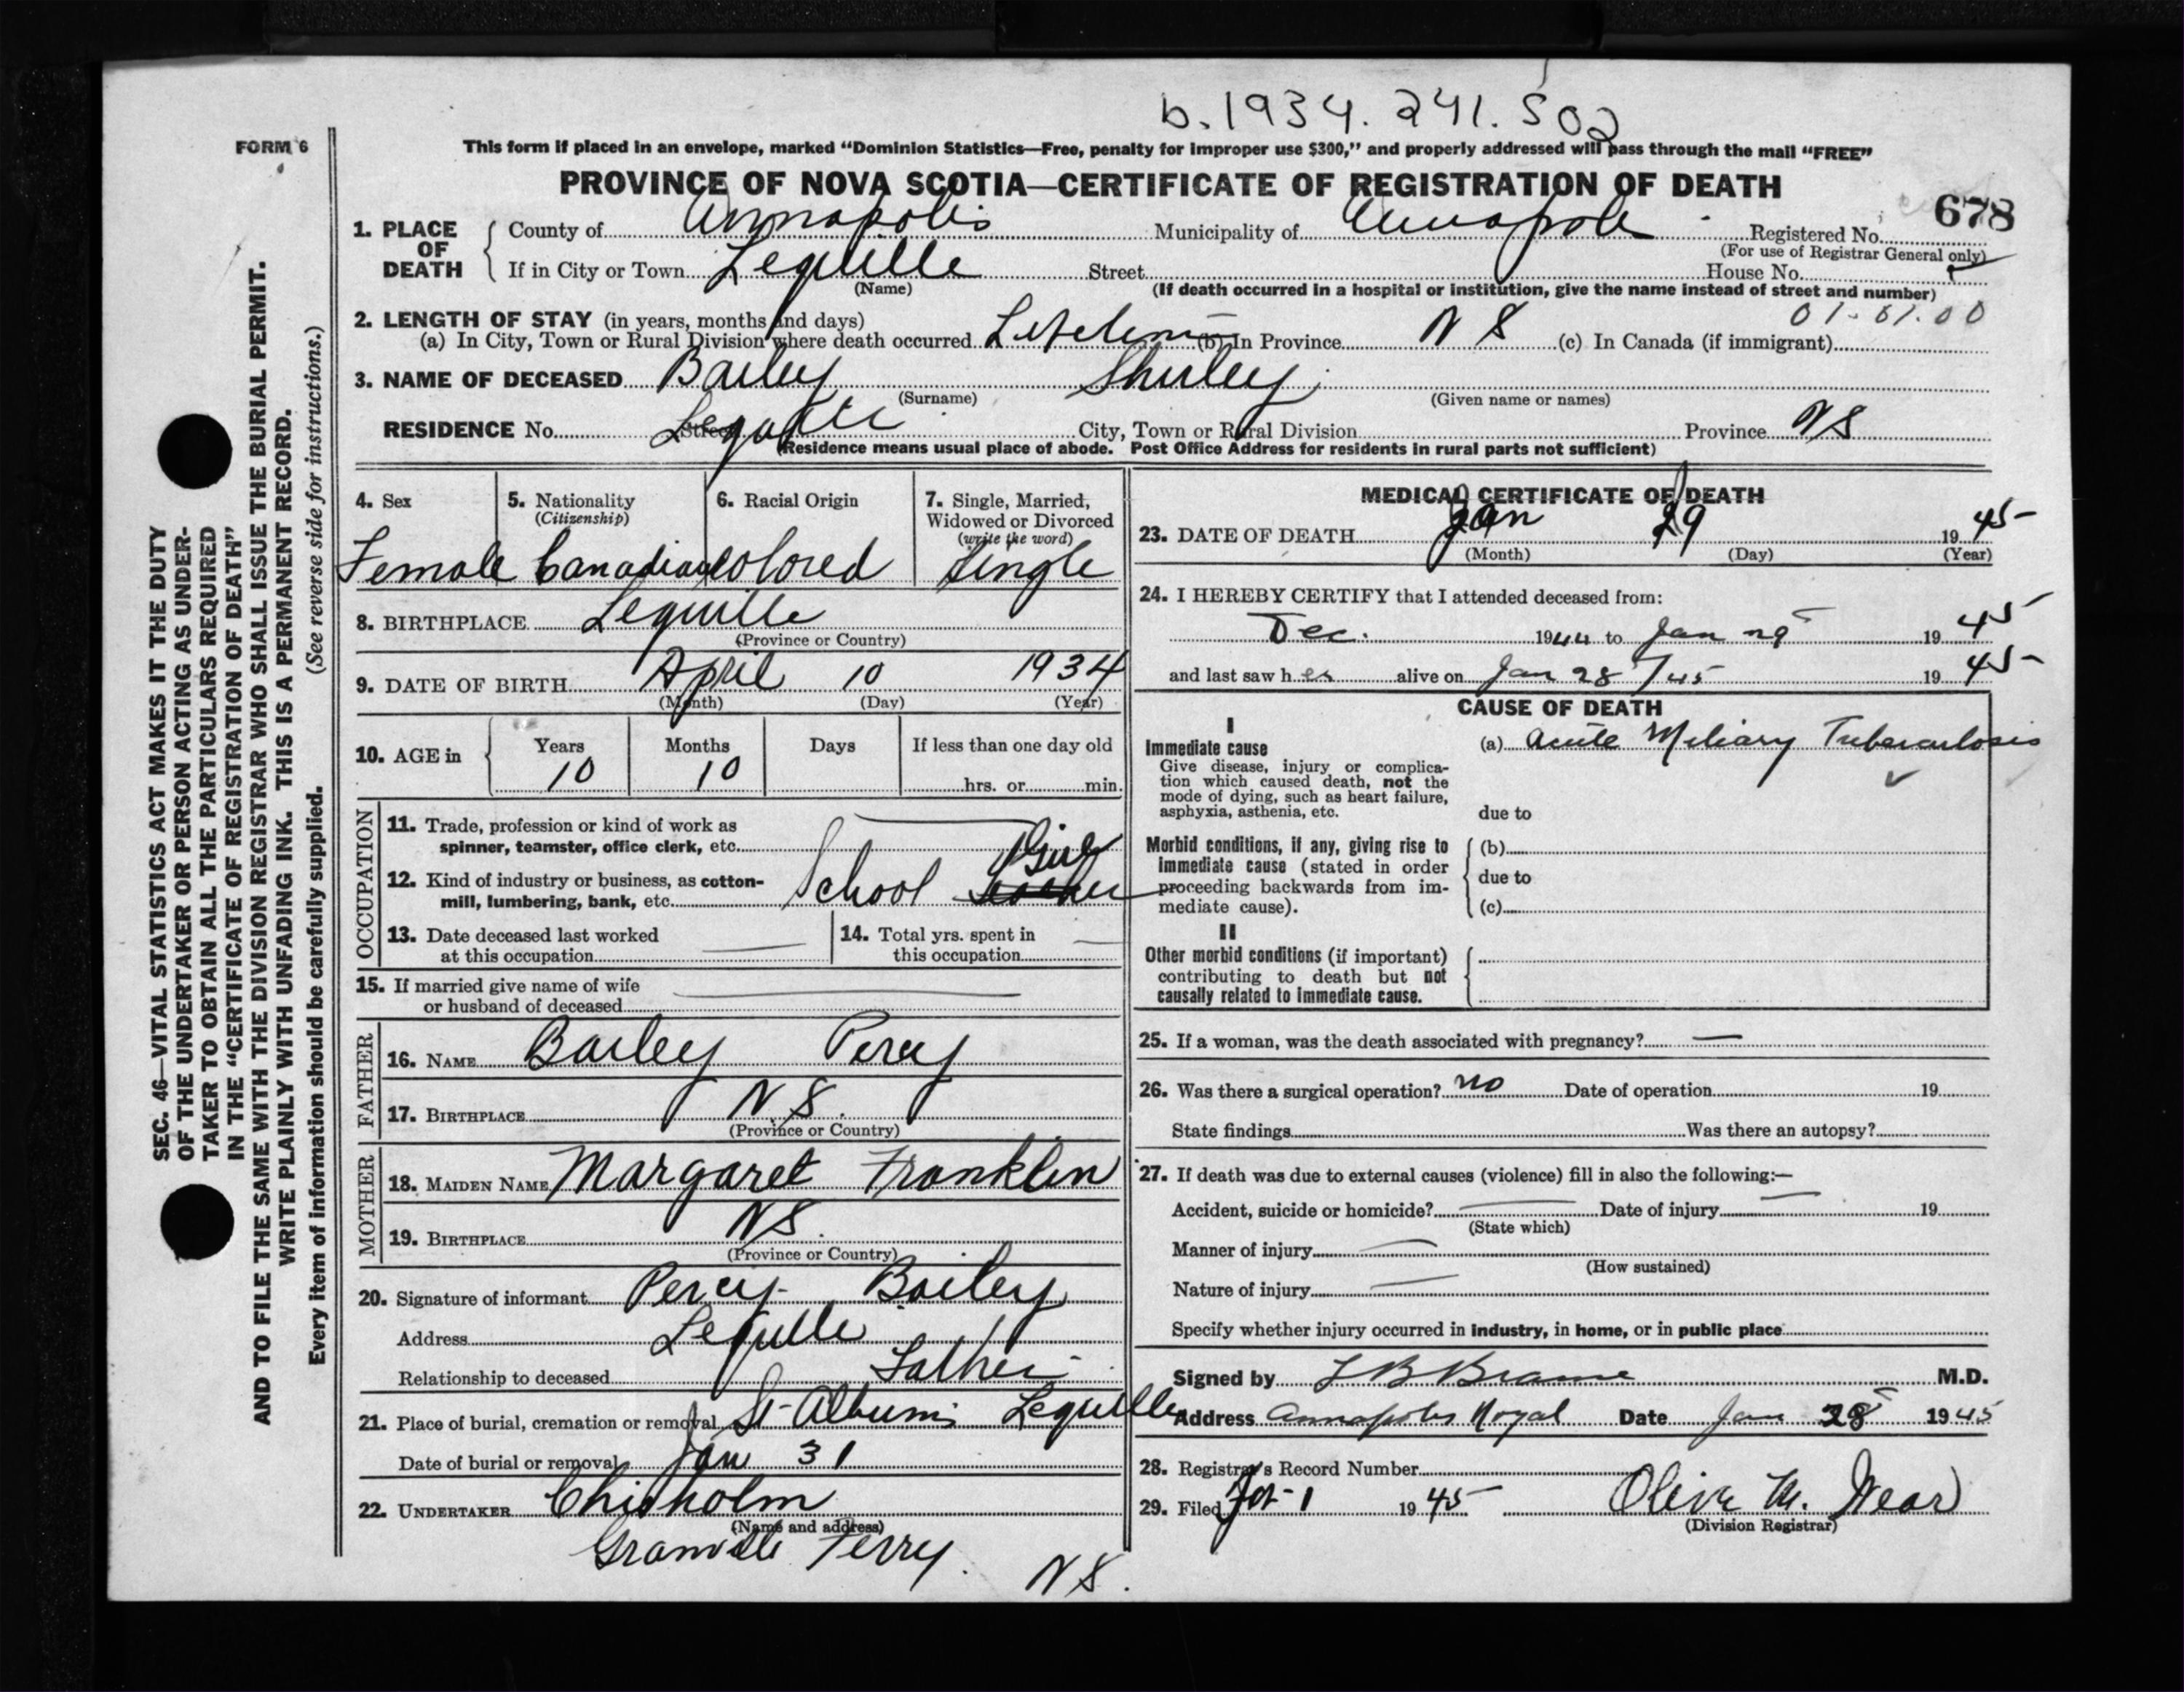 b. 1934. 241. 502
FORM 6
This form if placed in an envelope, marked “Dominion Statistics—Free, penalty for improper use $300,” and properly addressed will pass through the mail “FREE”
PROVINCE OF NOVA SCOTIA—CERTIFICATE OF REGISTRATION OF DEATH
678
1. PLACE OF DEATH
County of Annapolis Municipality of Annapolis Registered No.
(For use of Registrar General only)
If in City or Town Lequille Street House No.
(Name) (If death occurred in a hospital or institution, give the name instead of street and number)
01-01.00
2. LENGTH OF STAY (in years, months and days)
(a) In City, Town or Rural Division where death occurred Lifetime (b) In Province N S (c) In Canada (if immigrant)
3. NAME OF DECEASED Bailey Shirley
(Surname) (Given name or names)
RESIDENCE No. Street Lequille City, Town or Rural Division Province N S
(Residence means usual place of abode. Post Office Address for residents in rural parts not sufficient)
SEC. 46—VITAL STATISTICS ACT MAKES IT THE DUTY
OF THE UNDERTAKER OR PERSON ACTING AS UNDER-
TAKER TO OBTAIN ALL THE PARTICULARS REQUIRED
IN THE “CERTIFICATE OF REGISTRATION OF DEATH”
AND TO FILE THE SAME WITH THE DIVISION REGISTRAR WHO SHALL ISSUE THE BURIAL PERMIT.
WRITE PLAINLY WITH UNFADING INK. THIS IS A PERMANENT RECORD.
Every item of information should be carefully supplied. (See reverse side for instructions.)
4. Sex
Female
5. Nationality
(Citizenship)
Canadian
6. Racial Origin
Colored
7. Single, Married,
Widowed or Divorced
(write the word)
Single
8. BIRTHPLACE Lequille
(Province or Country)
9. DATE OF BIRTH April 10 1934
(Month) (Day) (Year)
10. AGE in
Years Months Days If less than one day old
10 10 hrs. or min.
OCCUPATION
11. Trade, profession or kind of work as
spinner, teamster, office clerk, etc.
12. Kind of industry or business, as cotton-
mill, lumbering, bank, etc. School Girl
13. Date deceased last worked
at this occupation
14. Total yrs. spent in
this occupation
15. If married give name of wife
or husband of deceased
FATHER
16. NAME Bailey Percy
17. BIRTHPLACE N.S.
(Province or Country)
MOTHER
18. MAIDEN NAME Margaret Franklin
19. BIRTHPLACE NS.
(Province or Country)
20. Signature of informant Percy Bailey
Address Lequille
Relationship to deceased Father
21. Place of burial, cremation or removal St Albans Lequille
Date of burial or removal Jan 31
22. UNDERTAKER Chisholm
(Name and address)
Granville Ferry. N S.
MEDICAL CERTIFICATE OF DEATH
23. DATE OF DEATH Jan 29 1945
(Month) (Day) (Year)
24. I HEREBY CERTIFY that I attended deceased from:
Dec. 1944 to Jan 29 1945
and last saw her alive on Jan 28/45 1945
CAUSE OF DEATH
I
Immediate cause
Give disease, injury or complica-
tion which caused death, not the
mode of dying, such as heart failure,
asphyxia, asthenia, etc.
(a) Acute Miliary Tuberculosis
due to
Morbid conditions, if any, giving rise to
immediate cause (stated in order
proceeding backwards from im-
mediate cause).
(b)
due to
(c)
II
Other morbid conditions (if important)
contributing to death but not
causally related to immediate cause.
25. If a woman, was the death associated with pregnancy? —
26. Was there a surgical operation? no Date of operation 19
State findings Was there an autopsy?
27. If death was due to external causes (violence) fill in also the following:—
Accident, suicide or homicide? Date of injury 19
(State which)
Manner of injury
(How sustained)
Nature of injury
Specify whether injury occurred in industry, in home, or in public place
Signed by L B Brame M.D.
Address Annapolis Royal Date Jan 28 1945
28. Registrar's Record Number
29. Filed Feb 1 1945 Olive M. Wear
(Division Registrar)